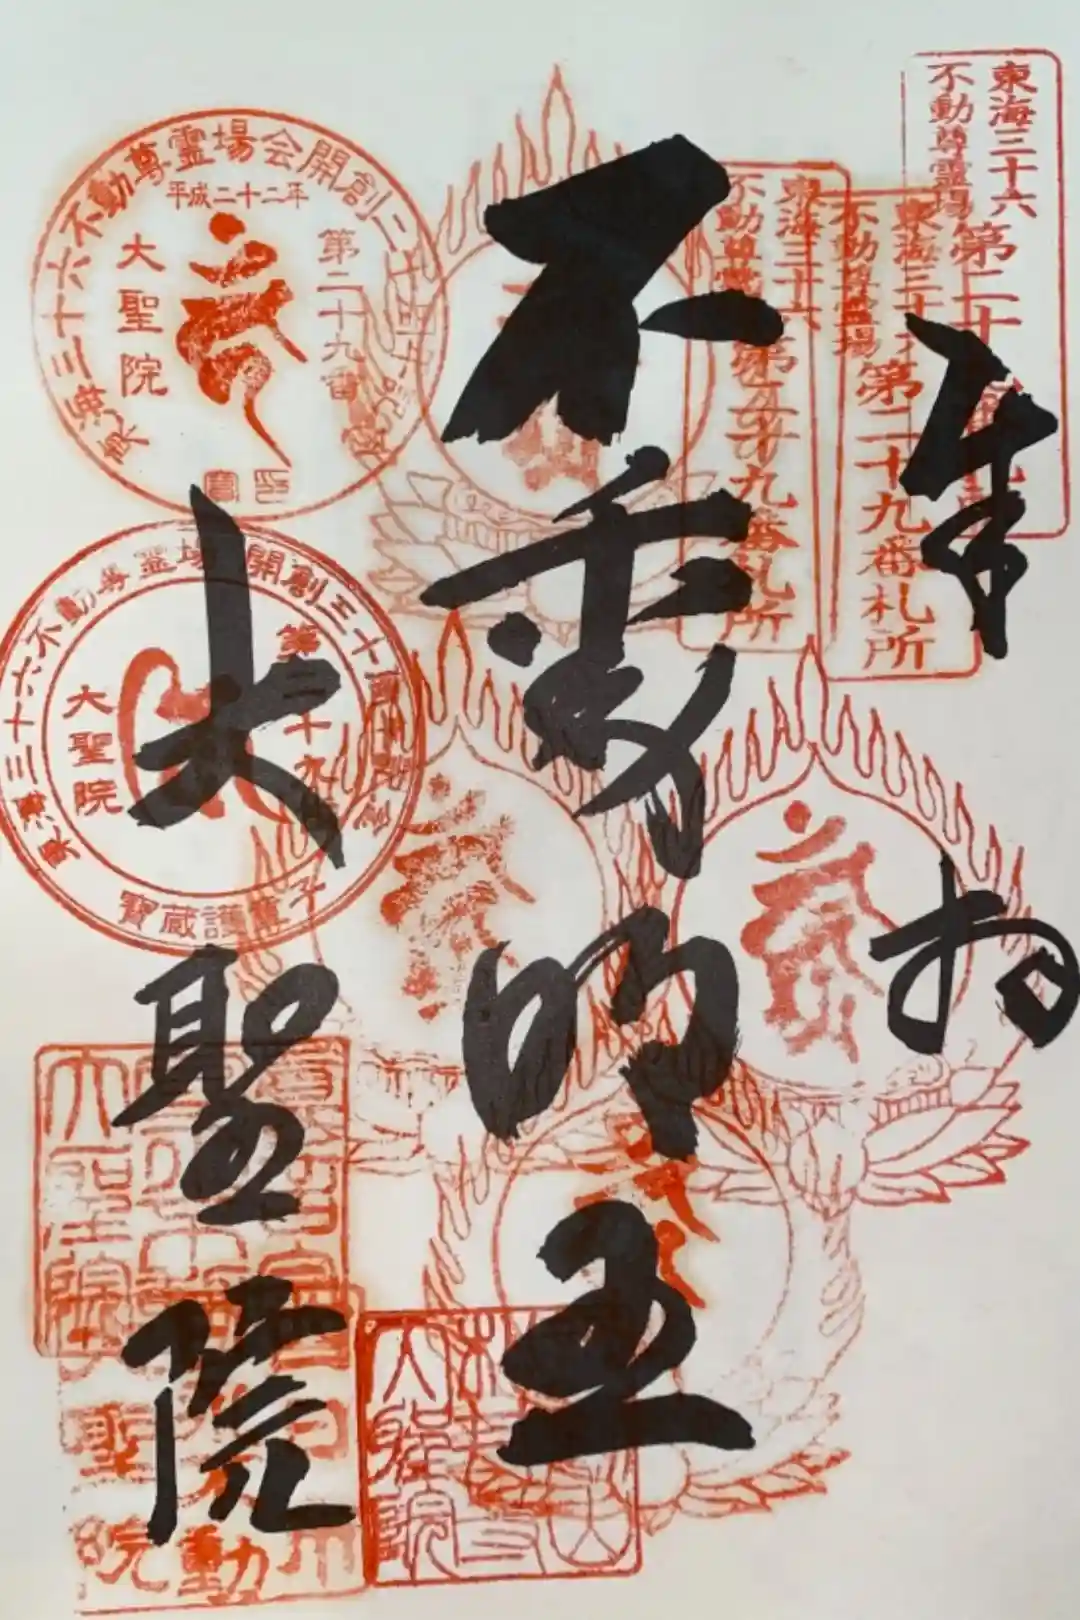 東海三十六
不動尊霊場
東海三十六
不動尊霊場
第二十九番札所
東海三十六
不動尊霊場
第二十九番札所
奉拝
不動明王
大聖院
東海三十六不動尊霊場会開創二十周年記念
平成二十二年
第二十九番
大聖院
東海三十六不動尊霊場 開創三十周年記念
第二十九番
大聖院
寶蔵護童子
大聖院
聖
院
動
大聖院